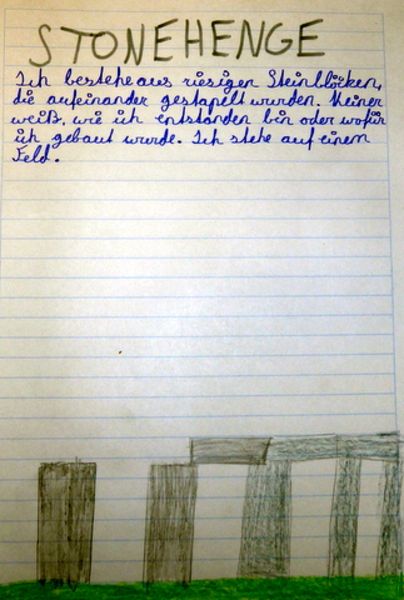 STONEHENGE
Ich bestehe aus riesigen Steinblöcken,
die aufeinander gestapelt wurden. Keiner
weiß, wie ich entstanden bin oder wofür
ich gebaut wurde. Ich stehe auf einem
Feld.